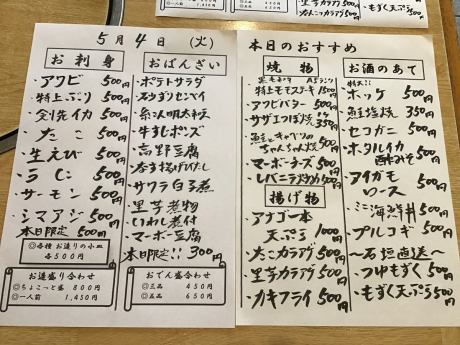 5月4日(火)
お刺身
・アワビ 500円
・特上ぶり 500円
・剣先イカ 500円
・たこ 500円
・生えび 500円
・うに 500円
・サーモン 500円
・シマアジ 500円
本日限定 500円
◎各種 お造りの小皿
各500円
お造り盛り合わせ
◎ちょこっと盛 800円
◎一人前 1,450円
おばんざい
・ポテトサラダ
・糸沢明太和え
・牛すじポンズ
・高野豆腐
・春子揚げびたし
・サワラ白子煮
・里芋煮物
・いわし煮付
・マーボー豆腐
本日限定!! 300円
おでん盛合わせ
◎三品 450円
◎五品 650円
本日のおすすめ
焼物
特上モモステーキ 1500円
・アワビバター 500円
・サザエつぼ焼 350円
・鮭とキャベツの
ちゃんちゃん焼 500円
・マーボーチーズ 500円
・レバニラ炒め 500円
揚げ物
・アナゴ一本
天ぷら 1000円
・たこカラアゲ 500円
・里芋カラアゲ 500円
・カキフライ 500円
お酒のあて
特大!!
・ホッケ 500円
・鮭塩焼 350円
・セコガニ 500円
・ホタルイカ
酢みそ 500円
・アイガモ
ロース 500円
・ミニ海鮮丼 500円
・プルコギ 500円
〜石垣直送〜
・つゆもずく 500円
・もずく天ぷら 500円